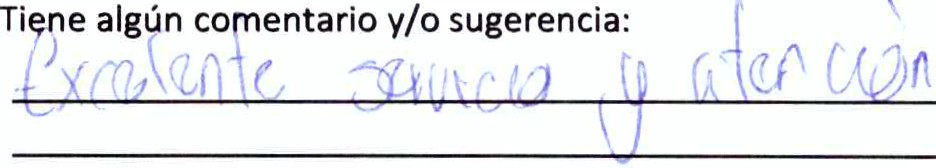 Tiene algún comentario y/o sugerencia:
Excelente servicio y atención